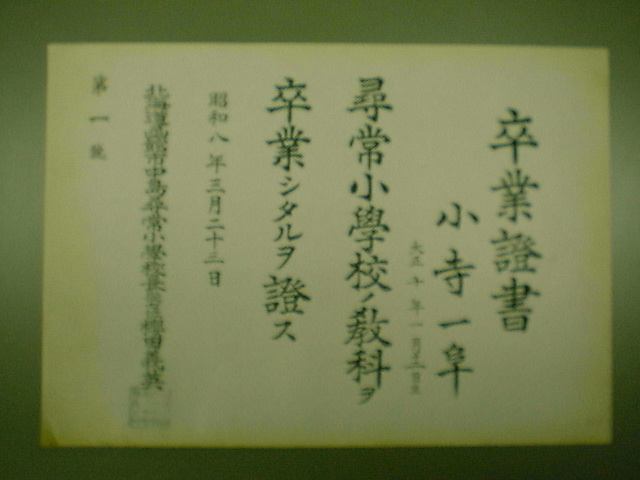 卒業證書
小寺一阜
大正十年一月
尋常小學校ノ敎科ヲ
卒業シタルヲ證ス
昭和八年三月二十三日
北海道函館市中島尋常小學校長
第一號